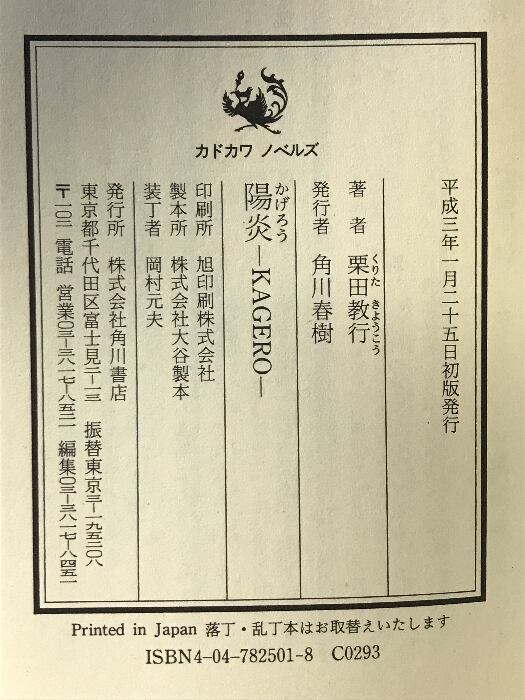 カドカワ ノベルズ
平成三年一月二十五日初版発行
著者 栗田教行
くりた きようこう
発行者 角川春樹
陽炎—KAGERO—
かげろう
印刷所 旭印刷株式会社
製本所 株式会社大谷製本
装丁者 岡村元夫
発行所 株式会社角川書店
東京都千代田区富士見二—一三 振替東京三—一九五二〇八
〒一〇二 電話 営業〇三—三八一七—八五二一 編集〇三—三八一七—八四五一
Printed in Japan 落丁・乱丁本はお取替えいたします
ISBN4-04-782501-8 C0293